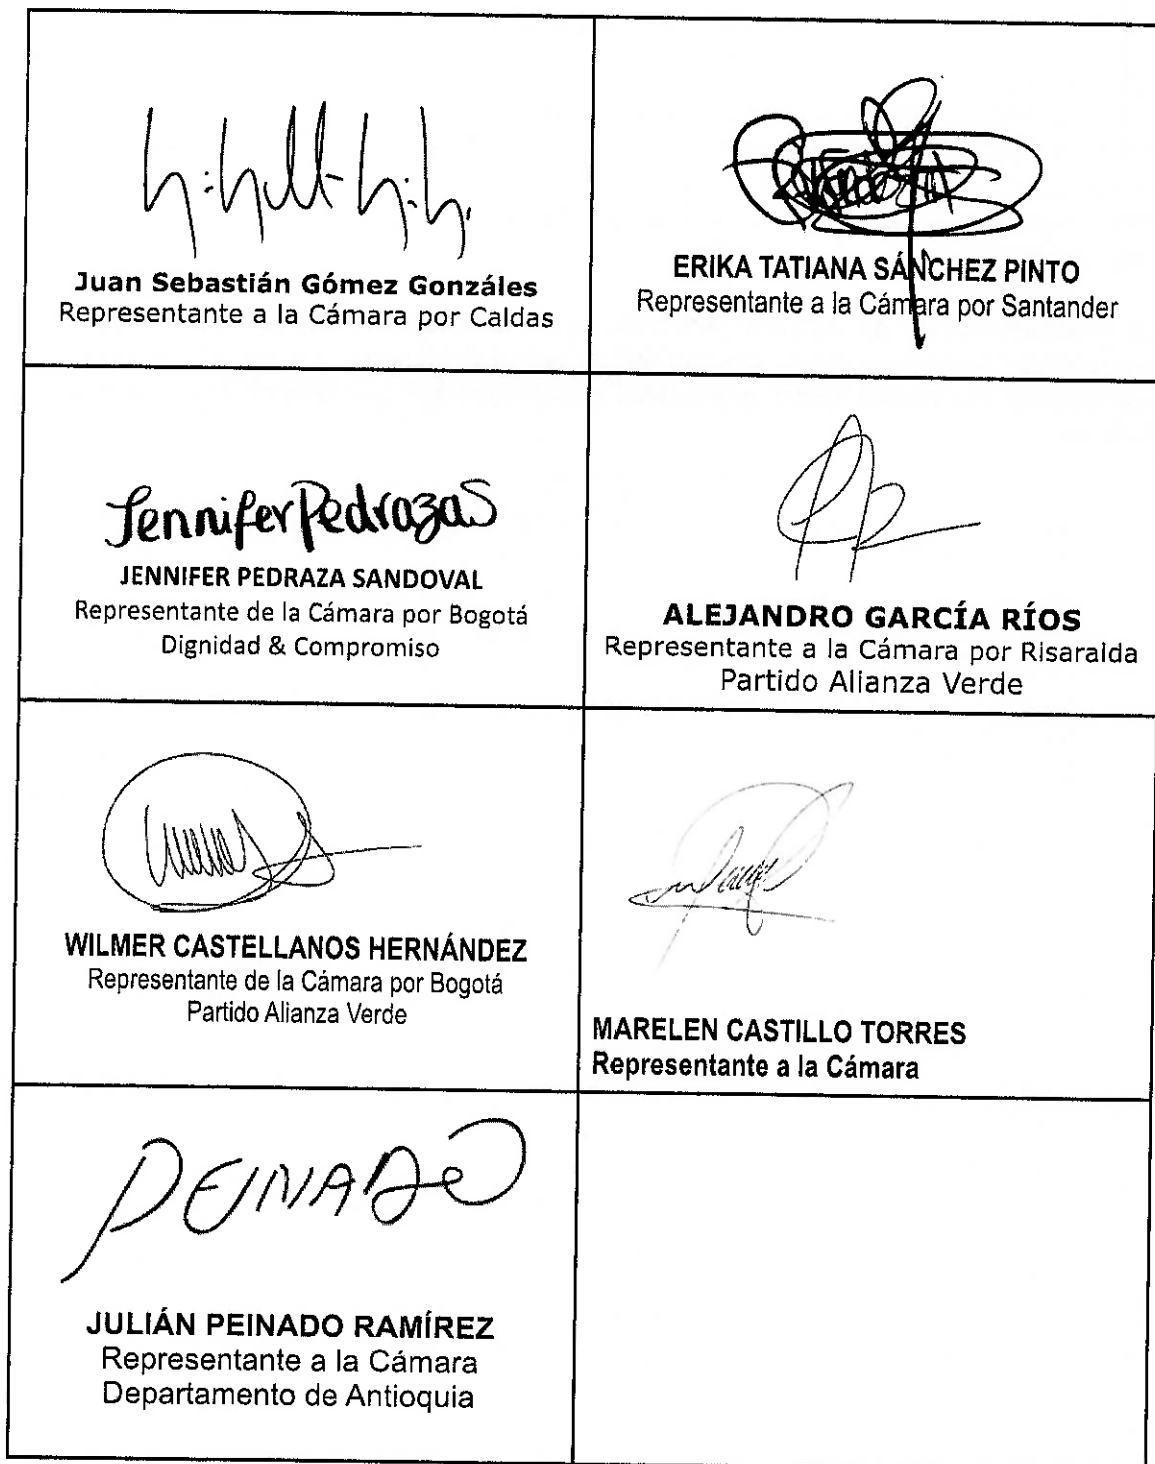 Juan Sebastián Gómez Gonzáles
Representante a la Cámara por Caldas
ERIKA TATIANA SÁNCHEZ PINTO
Representante a la Cámara por Santander
Jennifer Pedraza S
JENNIFER PEDRAZA SANDOVAL
Representante de la Cámara por Bogotá
Dignidad & Compromiso
ALEJANDRO GARCÍA RÍOS
Representante a la Cámara por Risaralda
Partido Alianza Verde
WILMER CASTELLANOS HERNÁNDEZ
Representante de la Cámara por Bogotá
Partido Alianza Verde
MARELEN CASTILLO TORRES
Representante a la Cámara
PEINADO
JULIÁN PEINADO RAMÍREZ
Representante a la Cámara
Departamento de Antioquia